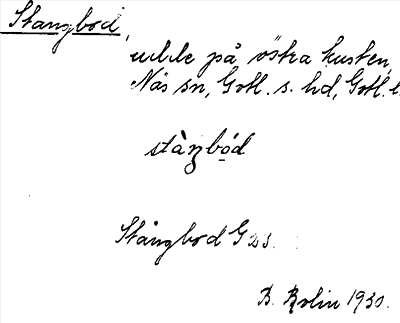 Stangbod,
udde på östra kusten,
Näs sn, Gotl. s. hd, Gotl. l.
stàŋbọd
Stångbod G 23.
B. Bolin 1930.